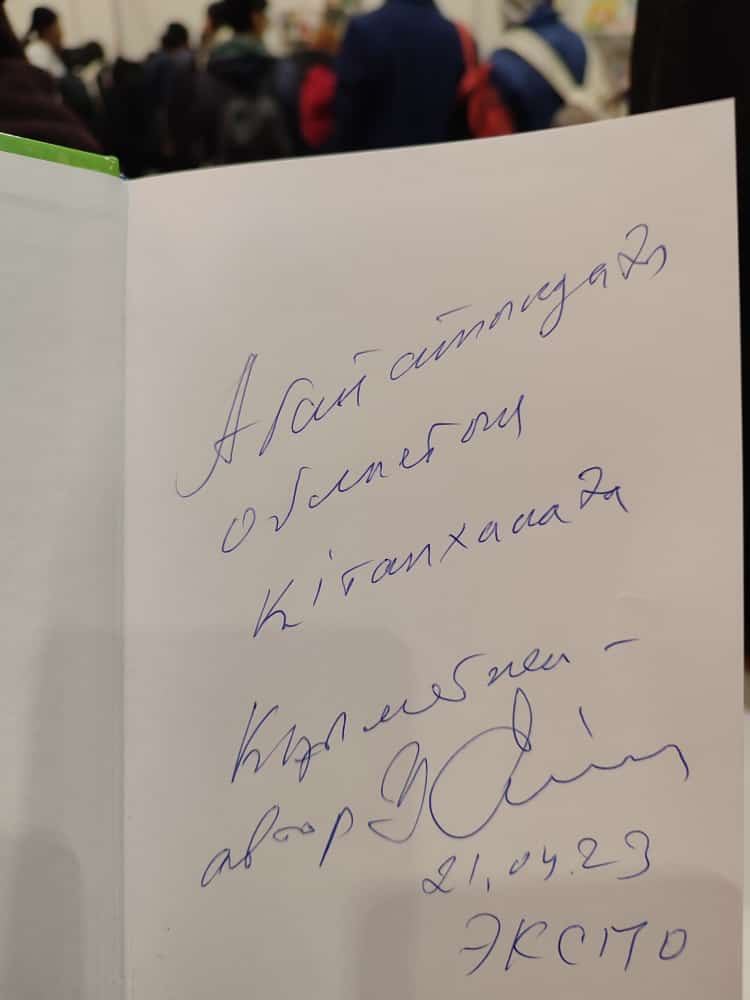 Абай атындағы
облыстық
кітапханаға
Құрметпен –
автор
21.04.23
ЭКСПО